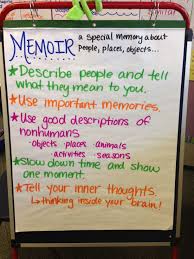 MEMOIR a special memory about
people, places, objects...
★Describe people and tell
what they mean to you.
★Use important memories.
★Use good descriptions of
nonhumans
·objects ·places ·animals
·activities ·seasons
★Slow down time and show
one moment.
★Tell your inner thoughts.
↳thinking inside your brain!